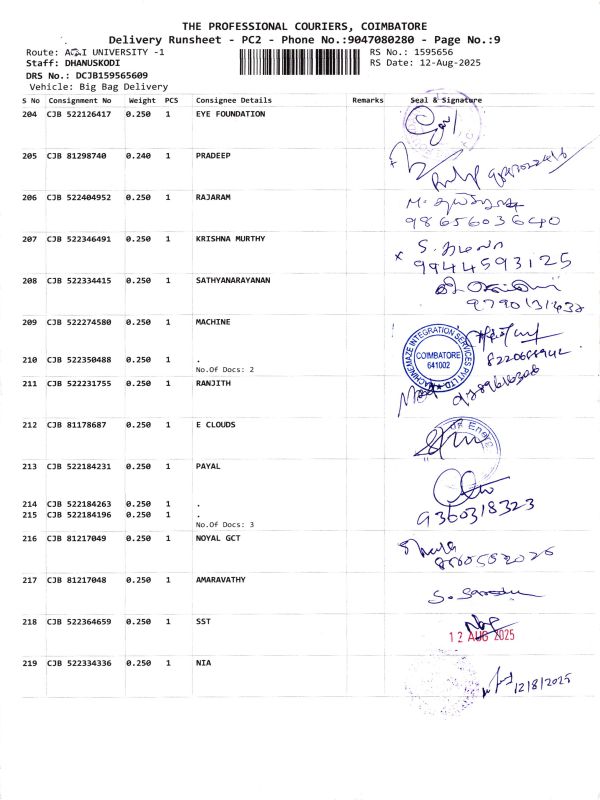 THE PROFESSIONAL COURIERS, COIMBATORE
Delivery Runsheet - PC2 - Phone No.:9047080280 - Page No.:9
Route: UNIVERSITY -1
RS No.: 1595656
Staff: DHANUSKODI
RS Date: 12-Aug-2025
DRS No.: DCJB159565609
Vehicle: Big Bag Delivery
S No Consignment No Weight PCS Consignee Details Remarks Seal & Signature
204 CJB 522126417 0.250 1 EYE FOUNDATION
205 CJB 81298740 0.240 1 PRADEEP
206 CJB 522404952 0.250 1 RAJARAM
9865603640
207 CJB 522346491 0.250 1 KRISHNA MURTHY
9944593125
208 CJB 522334415 0.250 1 SATHYANARAYANAN
209 CJB 522274580 0.250 1 MACHINE
MACHINEMAZE INTEGRATION SERVICES PVT LTD
COIMBATORE
641002
210 CJB 522350488 0.250 1 .
No.Of Docs: 2
211 CJB 522231755 0.250 1 RANJITH
212 CJB 81178687 0.250 1 E CLOUDS
213 CJB 522184231 0.250 1 PAYAL
214 CJB 522184263 0.250 1 .
215 CJB 522184196 0.250 1 .
9360318323
No.Of Docs: 3
216 CJB 81217049 0.250 1 NOYAL GCT
217 CJB 81217048 0.250 1 AMARAVATHY
218 CJB 522364659 0.250 1 SST
12 AUG 2025
219 CJB 522334336 0.250 1 NIA
12/8/2025